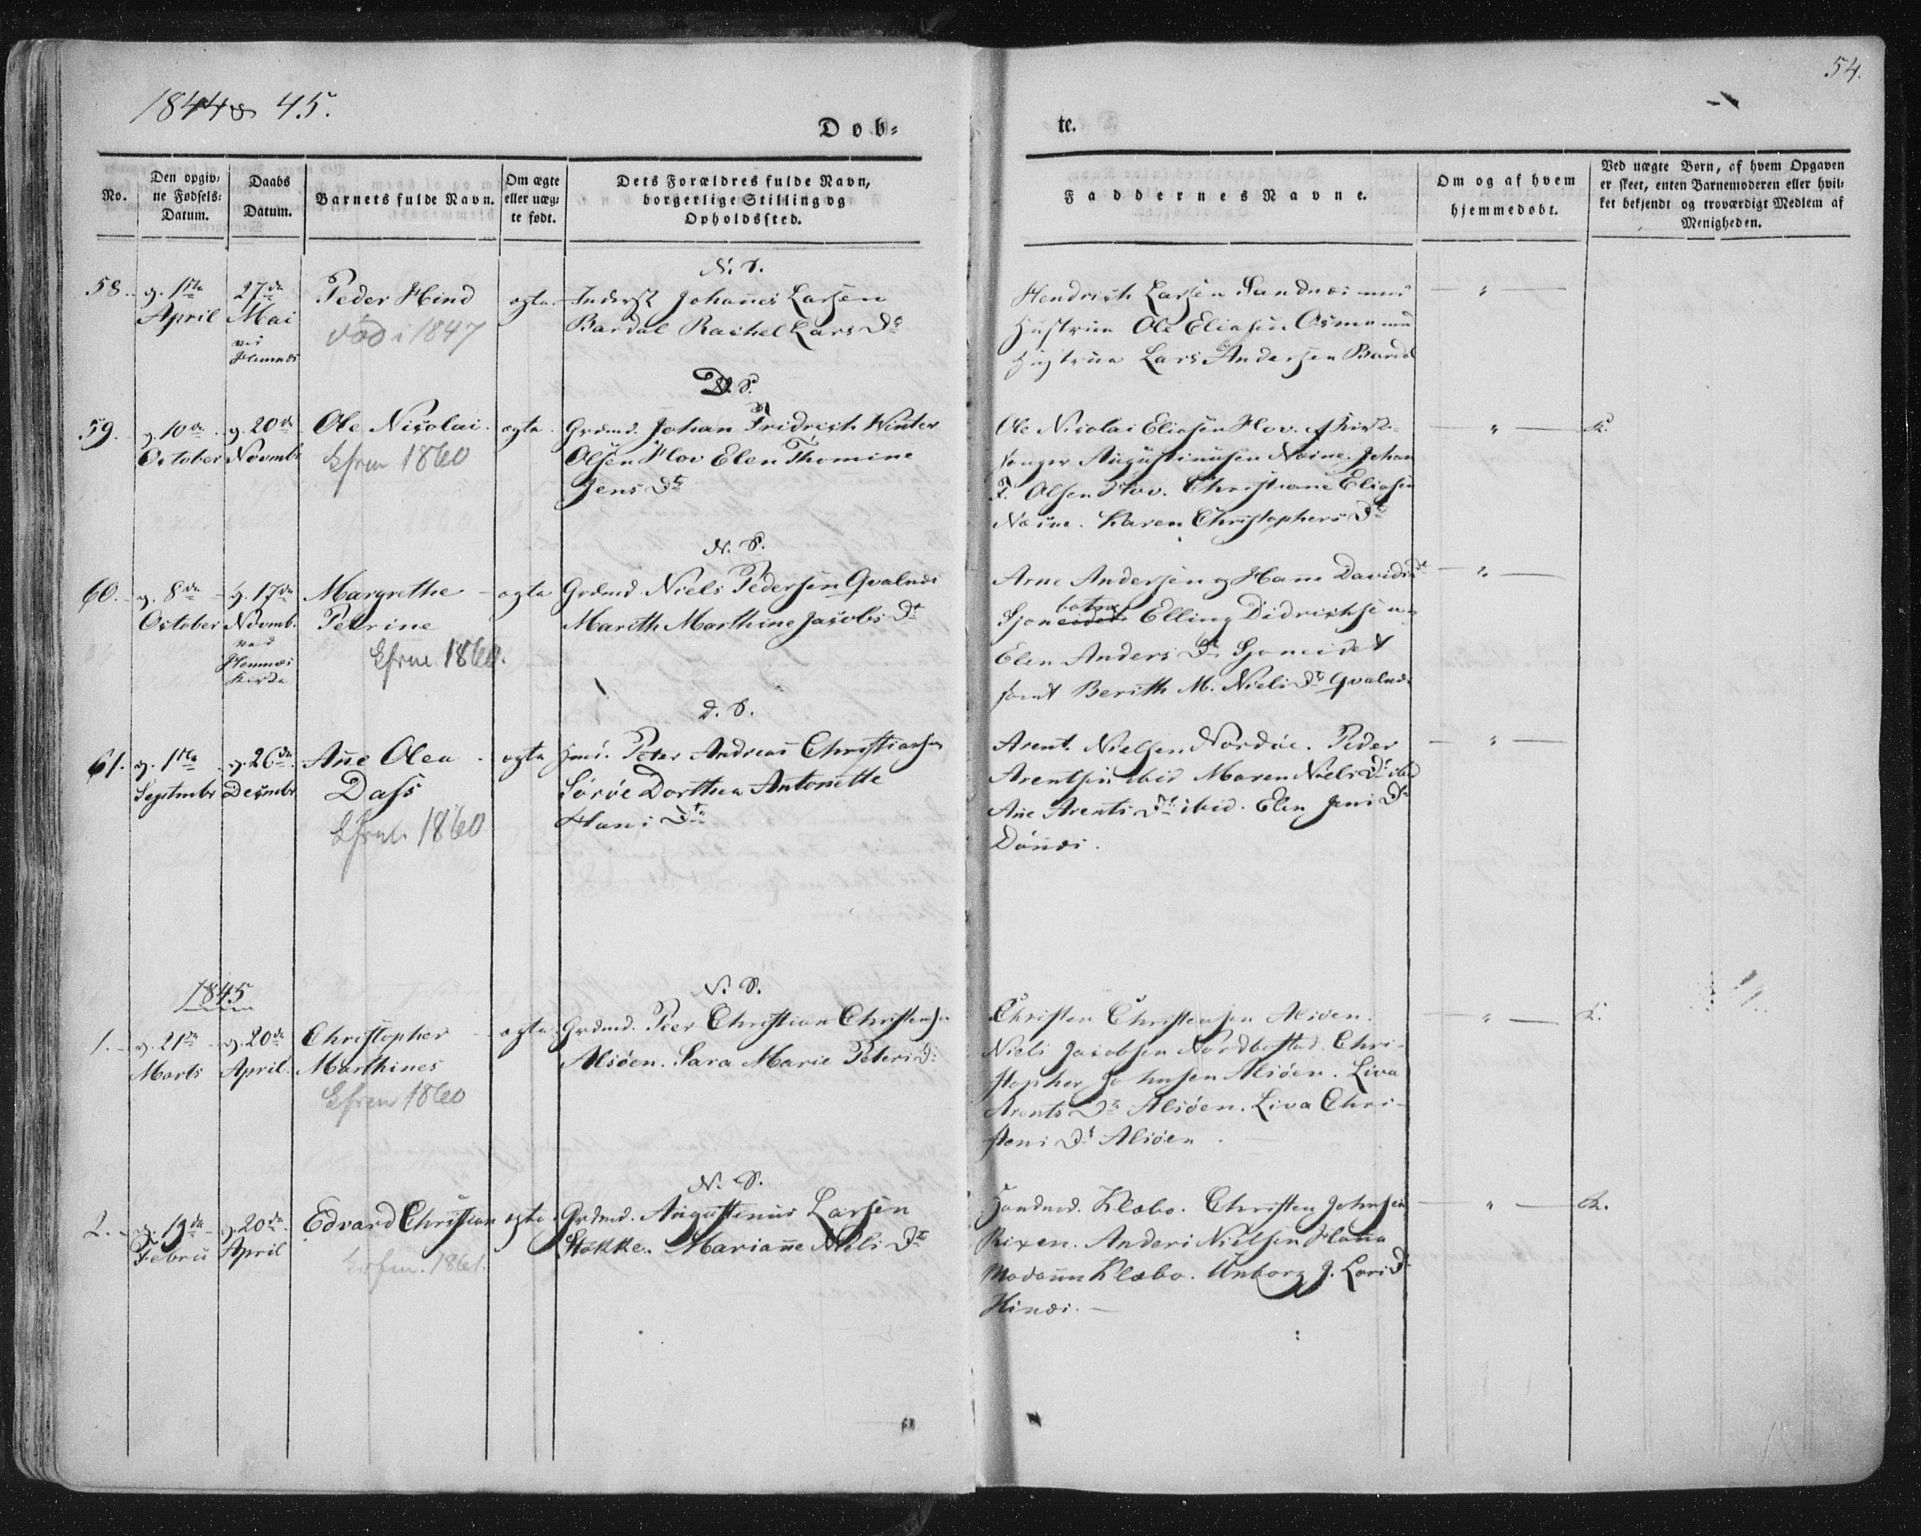 1844 & 45.
54.
Døb-
te.
No.
Den opgiv-
ne Fødsels-
Datum.
Daabs
Datum.
Barnets fulde Navn.
Om ægte
eller uæg-
te født.
Dets Forældres fulde Navn,
borgerlige Stilling og
Opholdssted.
Faddernes Navne.
Om og af hvem
hjemmedøbt.
Ved uægte Børn, af hvem Opgaven
er skeet, enten Barnemoderen eller hvil-
ket bekjendt og troværdigt Medlem af
Menigheden.
N. S.
58. 1ste
April
27de
Mai
Hemnæs
Peder Hind
død i 1847
ægte
Inderst Johannes Larsen
Bardal Rachel Lars Dr
Hendrich Larsen Sandnæs med
Hustrue Ole Eliasen Osmo med
Hustrue Lars Andersen Bardal
D. S.
59. 10de
October
20de
Novmb.
Ole Nicolai
Cfrm 1860
ægte
Grdmd. Johan Fridrich Winter
Olsen Hov Elen Thomine
Jens Dtr
Ole Nicolai Eliasen Hov. Kirke-
sanger Augustinusen Næsne. Johan
F. Olsen Hov. Christiane Eliasen
Næsne. Karen Christophers Dtr
N. S.
60. 8de
October
17de
Novmb.
ved
Hemnæs
Kirke
Margrethe
Petrine
Cfrm. 1860.
ægte
Grdmd. Niels Pedersen Qvalnæs
Mareth Marthine Jacobs Dtr
Arne Andersen og Hane Davids Dtr
Sjonbotne Elling Didrichsen
Elen Anders Dtr Sjoneidet
samt Berith M. Niels Dtr Qvalnæs
D. S.
61. 1ste
Septmbr
26de
Decmbr
Ane Olea
Dass
Cfrm. 1860
ægte
Hmd. Peter Andreas Christiansen
Sørøe Dorthea Antonette
Hans Dtr
Arent Nielsen Nordøe. Peder
Arentsen ibid Maren Niels Dtr ibid
Ane Arents Dtr ibid. Elen Jens Dtr
Dønæs.
1845
N. S.
1. 21de
Marts
20de
April
Christopher
Marthines
Cfrm 1860
ægte
Grdmd. Peer Christian Christensen
Alsøen. Sara Marie Peters Dr
Christen Christensen Alsøen.
Niels Jacobsen Nordbostad. Chri-
stopher Johnsen Alsøen. Liva
Arents Dtr Alsøen. Liva Chri-
stens Dtr Alsøen.
N. S.
2. 19de
Febru
20de
April
Edvard Christian
Cfrm. 1861.
ægte
Grdmd. Augustinus Larsen
Stokke. Mariane Niels Dtr
Handmd. Klæbo. Christen Johnsen
Rixen. Anders Nielsen
Madamm Klæbo. Unborg J. Lars Dtr
Hinæs.